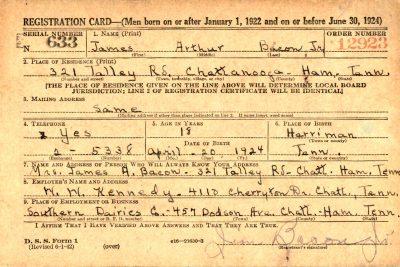 REGISTRATION CARD—(Men born on or after January 1, 1922 and on or before June 30, 1924)
SERIAL NUMBER 1. NAME (Print) ORDER NUMBER
N 633 James Arthur Bacon, Jr 12923
(First) (Middle) (Last)
2. PLACE OF RESIDENCE (Print)
321 Talley Rd, Chattanooga - Ham, Tenn.
(Number and street) (Town, township, village, or city) (County) (State)
[THE PLACE OF RESIDENCE GIVEN ON THE LINE ABOVE WILL DETERMINE LOCAL BOARD
JURISDICTION; LINE 2 OF REGISTRATION CERTIFICATE WILL BE IDENTICAL]
3. MAILING ADDRESS
Same
(Mailing address if other than place indicated on line 2. If same insert word same)
4. TELEPHONE 5. AGE IN YEARS 6. PLACE OF BIRTH
Yes 18 Harriman
DATE OF BIRTH (Town or county)
2-5338 April-20-1924 Tenn.
(Exchange) (Number) (Mo.) (Day) (Yr.) (State or country)
7. NAME AND ADDRESS OF PERSON WHO WILL ALWAYS KNOW YOUR ADDRESS
Mrs. James A. Bacon - 321 Talley Rd - Chatt. Ham, Tenn
8. EMPLOYER'S NAME AND ADDRESS
W. W. Kennedy - 4110 Cherryton Dr. Chatt., Tenn.
9. PLACE OF EMPLOYMENT OR BUSINESS
Southern Dairies Co. - 457 Dodson Ave. Chatt.-Ham. Tenn
(Number and street or R. F. D. number) (Town) (County) (State)
I AFFIRM THAT I HAVE VERIFIED ABOVE ANSWERS AND THAT THEY ARE TRUE.
D. S. S. Form 1
(Revised 6-1-42) (over) 16-21630-2
(Registrant's signature)